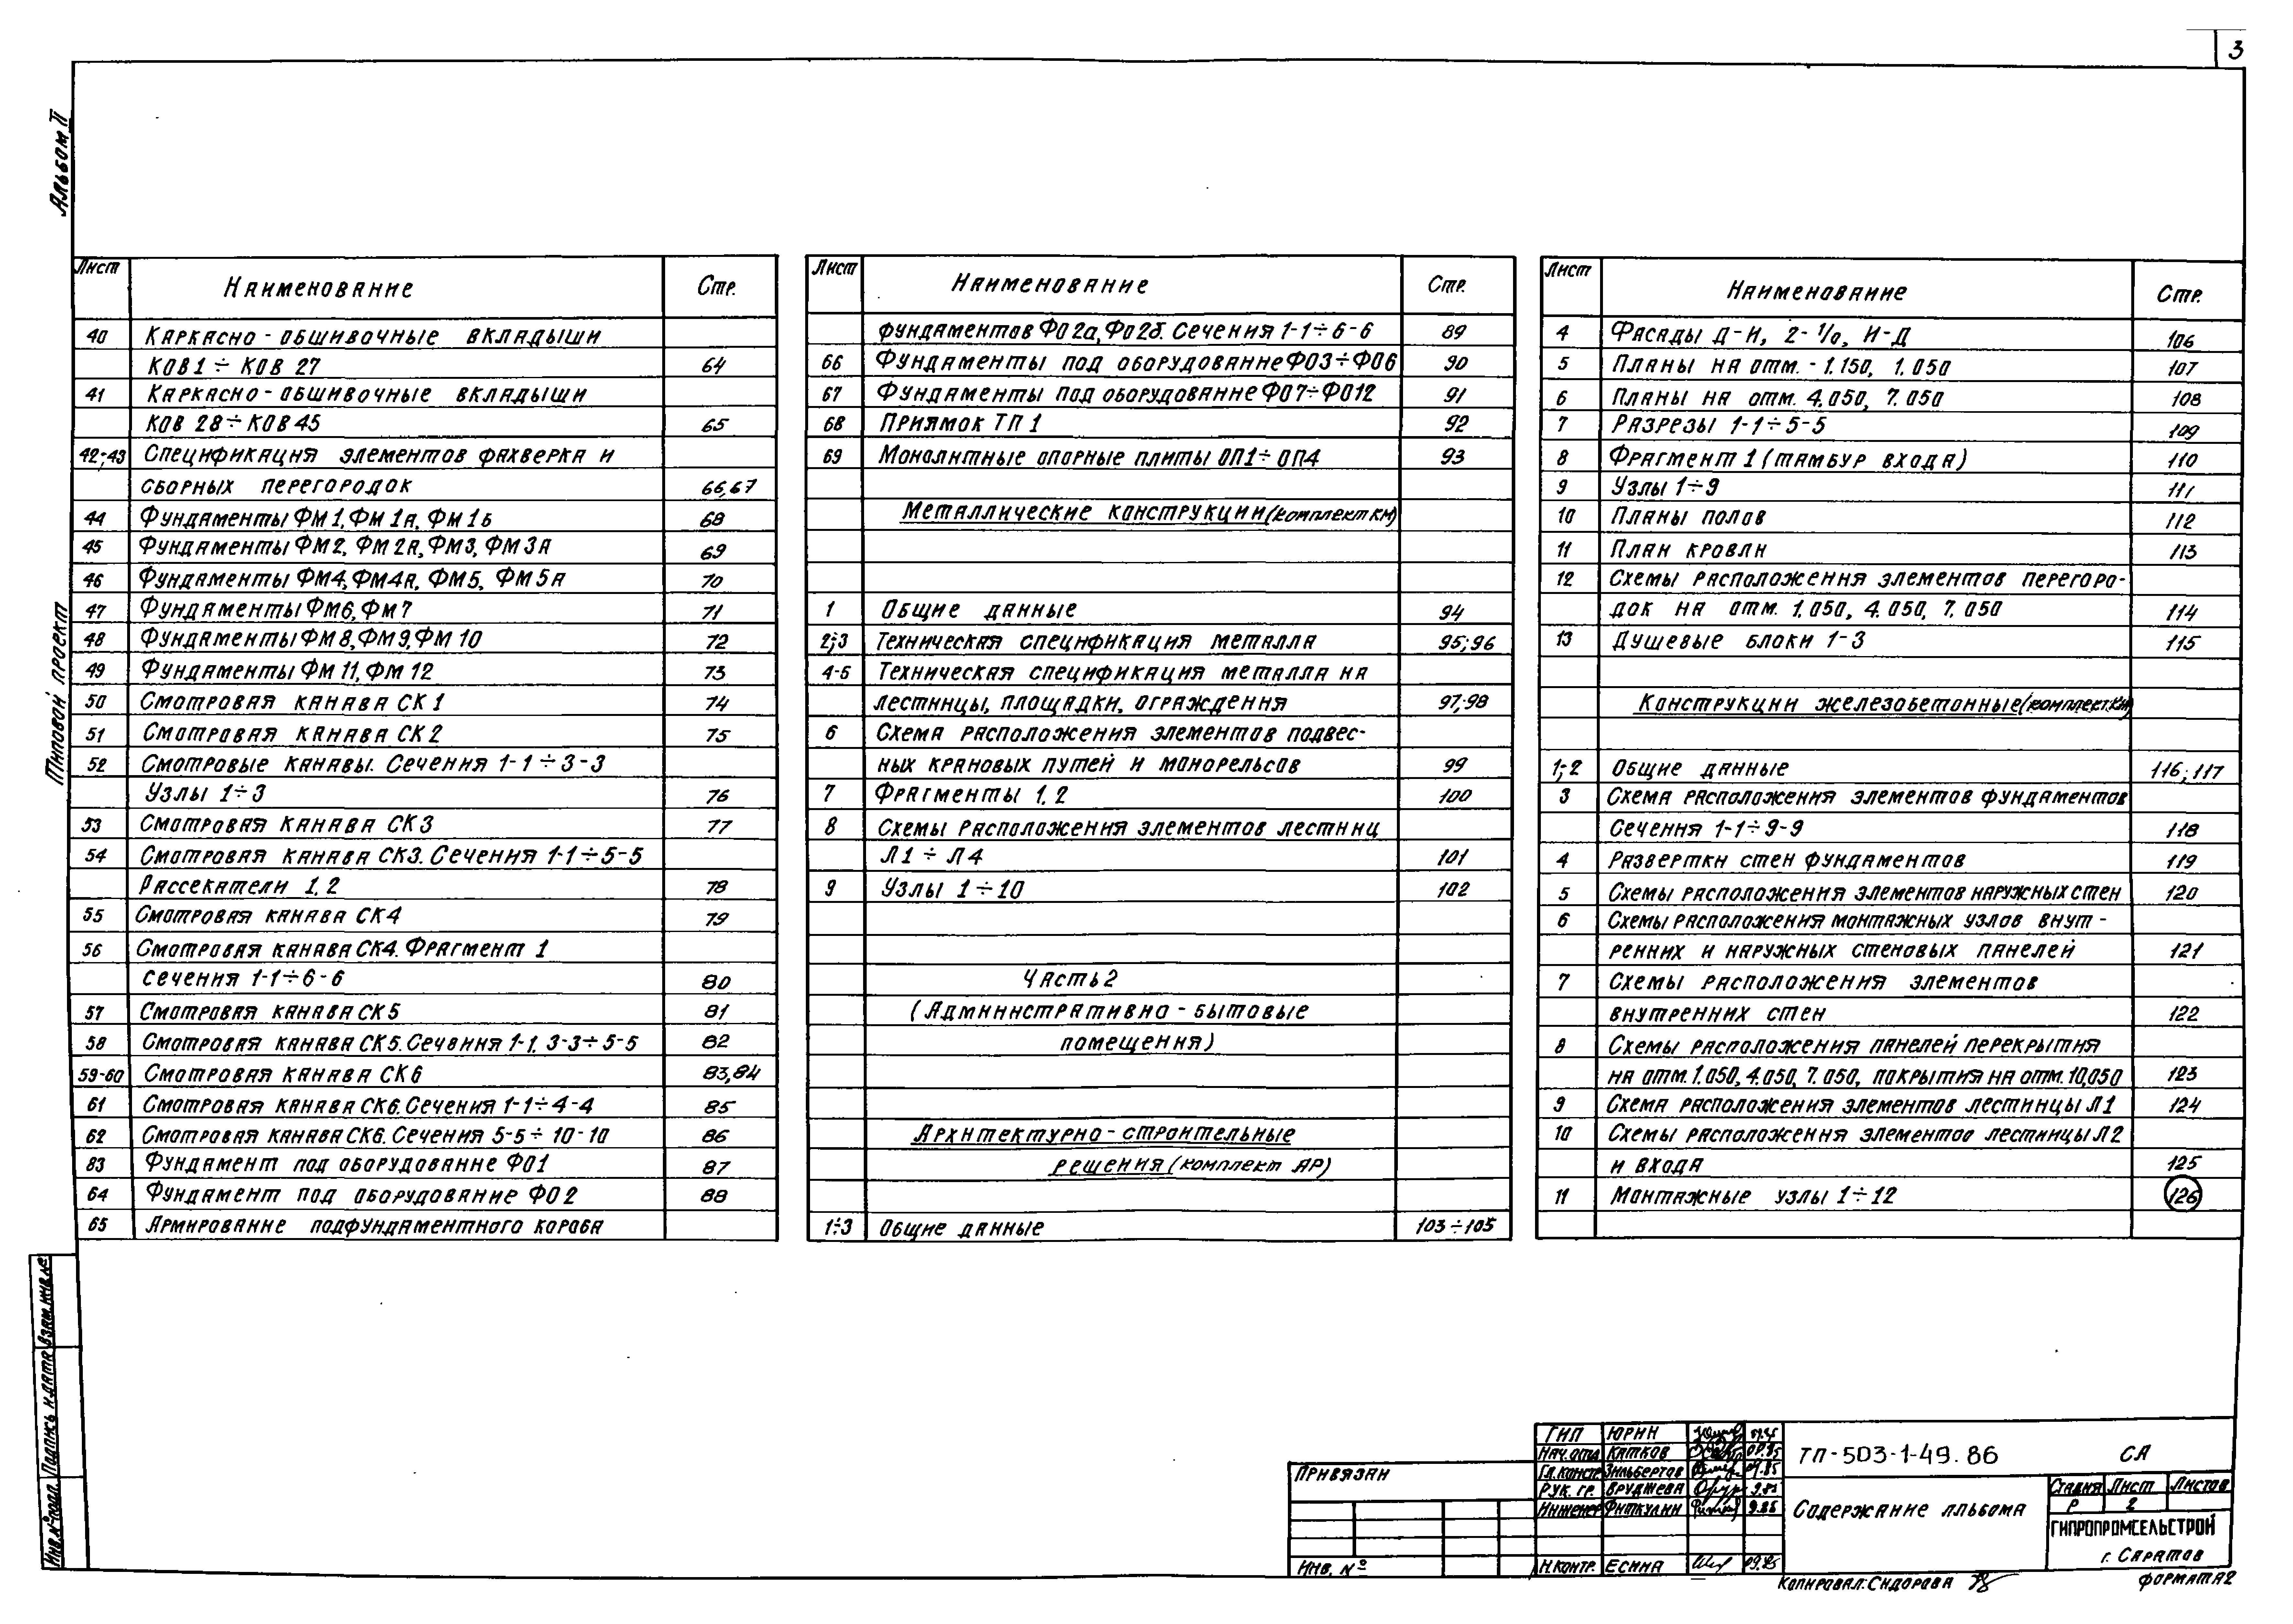 3
Альбом II
Типовой проект
Лист Наименование Стр.
40 Каркасно-обшивочные вкладыши
КОВ1÷КОВ 27 64
41 Каркасно-обшивочные вкладыши
КОВ 28÷КОВ45 65
42;43 Спецификация элементов фахверка и
сборных перегородок 66,67
44 Фундаменты ФМ1, ФМ1а, ФМ1б 68
45 Фундаменты ФМ2, ФМ2а, ФМ3, ФМ3а 69
46 Фундаменты ФМ4, ФМ4а, ФМ5, ФМ5а 70
47 Фундаменты ФМ6, ФМ7 71
48 Фундаменты ФМ8, ФМ9, ФМ10 72
49 Фундаменты ФМ11, ФМ12 73
50 Смотровая канава СК1 74
51 Смотровая канава СК2 75
52 Смотровые канавы. Сечения 1-1÷3-3
Узлы 1÷3 76
53 Смотровая канава СК3 77
54 Смотровая канава СК3. Сечения 1-1÷5-5
Рассекатели 1,2 78
55 Смотровая канава СК4 79
56 Смотровая канава СК4. Фрагмент 1
сечения 1-1÷6-6 80
57 Смотровая канава СК5 81
58 Смотровая канава СК5. Сечения 1-1, 3-3÷5-5 82
59-60 Смотровая канава СК6 83,84
61 Смотровая канава СК6. Сечения 1-1÷4-4 85
62 Смотровая канава СК6. Сечения 5-5÷10-10 86
83 Фундамент под оборудование ФО1 87
64 Фундамент под оборудование ФО2 88
65 Армирование подфундаментного короба
Лист Наименование Стр.
фундаментов ФО2а, ФО2б. Сечения 1-1÷6-6 89
66 Фундаменты под оборудование ФО3÷ФО6 90
67 Фундаменты под оборудование ФО7÷ФО12 91
68 Приямок ТП1 92
69 Монолитные опорные плиты ОП1÷ОП4 93
Металлические конструкции (комплект КМ)
1 Общие данные 94
2;3 Техническая спецификация металла 95;96
4-5 Техническая спецификация металла на
лестницы, площадки, ограждения 97,98
6 Схема расположения элементов подвес-
ных крановых путей и монорельсов 99
7 Фрагменты 1,2 100
8 Схемы расположения элементов лестниц
Л1÷Л4 101
9 Узлы 1÷10 102
Часть 2
(Административно-бытовые
помещения)
Архитектурно-строительные
решения (комплект АР)
1÷3 Общие данные 103÷105
Лист Наименование Стр.
4 Фасады Д-И, 2-1/0, И-Д 106
5 Планы на отм. -1.150, 1.050 107
6 Планы на отм. 4.050, 7.050 108
7 Разрезы 1-1÷5-5 109
8 Фрагмент 1 (тамбур входа) 110
9 Узлы 1÷9 111
10 Планы полов 112
11 План кровли 113
12 Схемы расположения элементов перегоро-
док на отм. 1.050, 4.050, 7.050 114
13 Душевые блоки 1-3 115
Конструкции железобетонные (комплект КЖ)
1;2 Общие данные 116;117
3 Схема расположения элементов фундаментов
Сечения 1-1÷9-9 118
4 Развертки стен фундаментов 119
5 Схемы расположения элементов наружных стен 120
6 Схемы расположения монтажных узлов внут-
ренних и наружных стеновых панелей 121
7 Схемы расположения элементов
внутренних стен 122
8 Схемы расположения панелей перекрытия
на отм. 1.050, 4.050, 7.050, покрытия на отм. 10,050 123
9 Схема расположения элементов лестницы Л1 124
10 Схемы расположения элементов лестницы Л2
и входа 125
11 Монтажные узлы 1÷12 126
Взам. инв.№
Подпись и дата
Инв.№ подл.
Привязан
Инв. №
ГИП Юрин 09.85
Нач. отд. Катков 09.85
Гл. констр. Зильбертов 09.85
Рук. гр. 9.85
Инженер Фиткулин 9.85
Н.контр. Есина 09.85
ТП-503-1-49.86 СА
Содержание альбома
Стадия Лист Листов
Р 2
ГИПРОПРОМСЕЛЬСТРОЙ
г. Саратов
Копировал: Сидорова
Формат А2